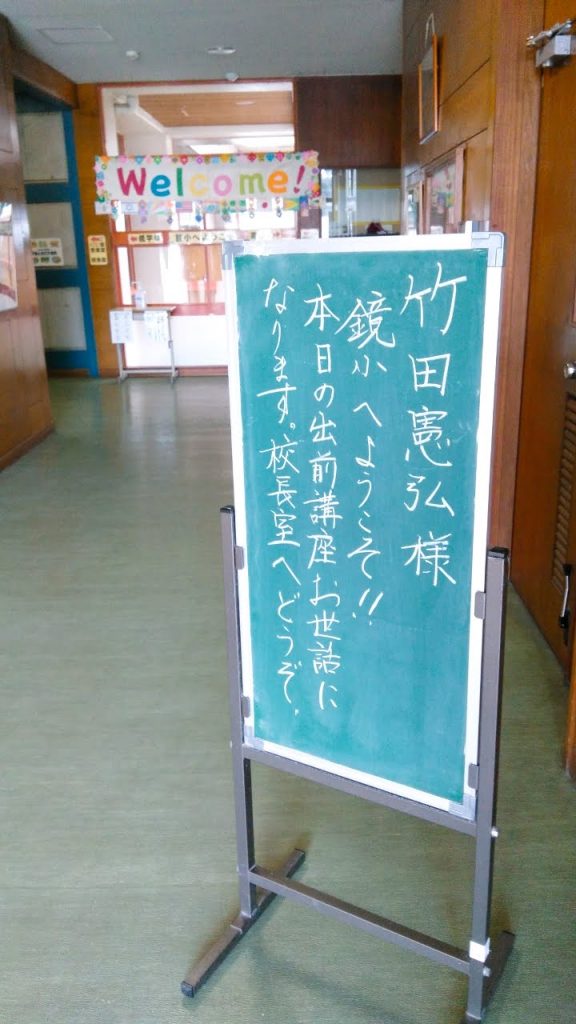 竹田憲弘様
鏡小へようこそ!!
本日の出前講座お世話に
なります。校長室へどうぞ。
Welcome!